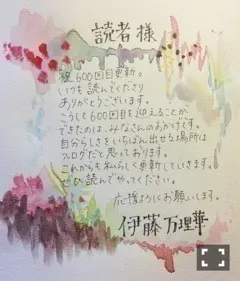 読者様
祝600回目更新。
いつも読んでくださり
ありがとうございます。
こうして600回目を迎えることが
できたのは、みなさんのおかげです。
自分らしさをいちばん出せる場所は
ブログだと思っております。
これからも私らしく更新していきます。
ぜひ読んでやってください。
応援ようにお願いします。
伊藤万理華